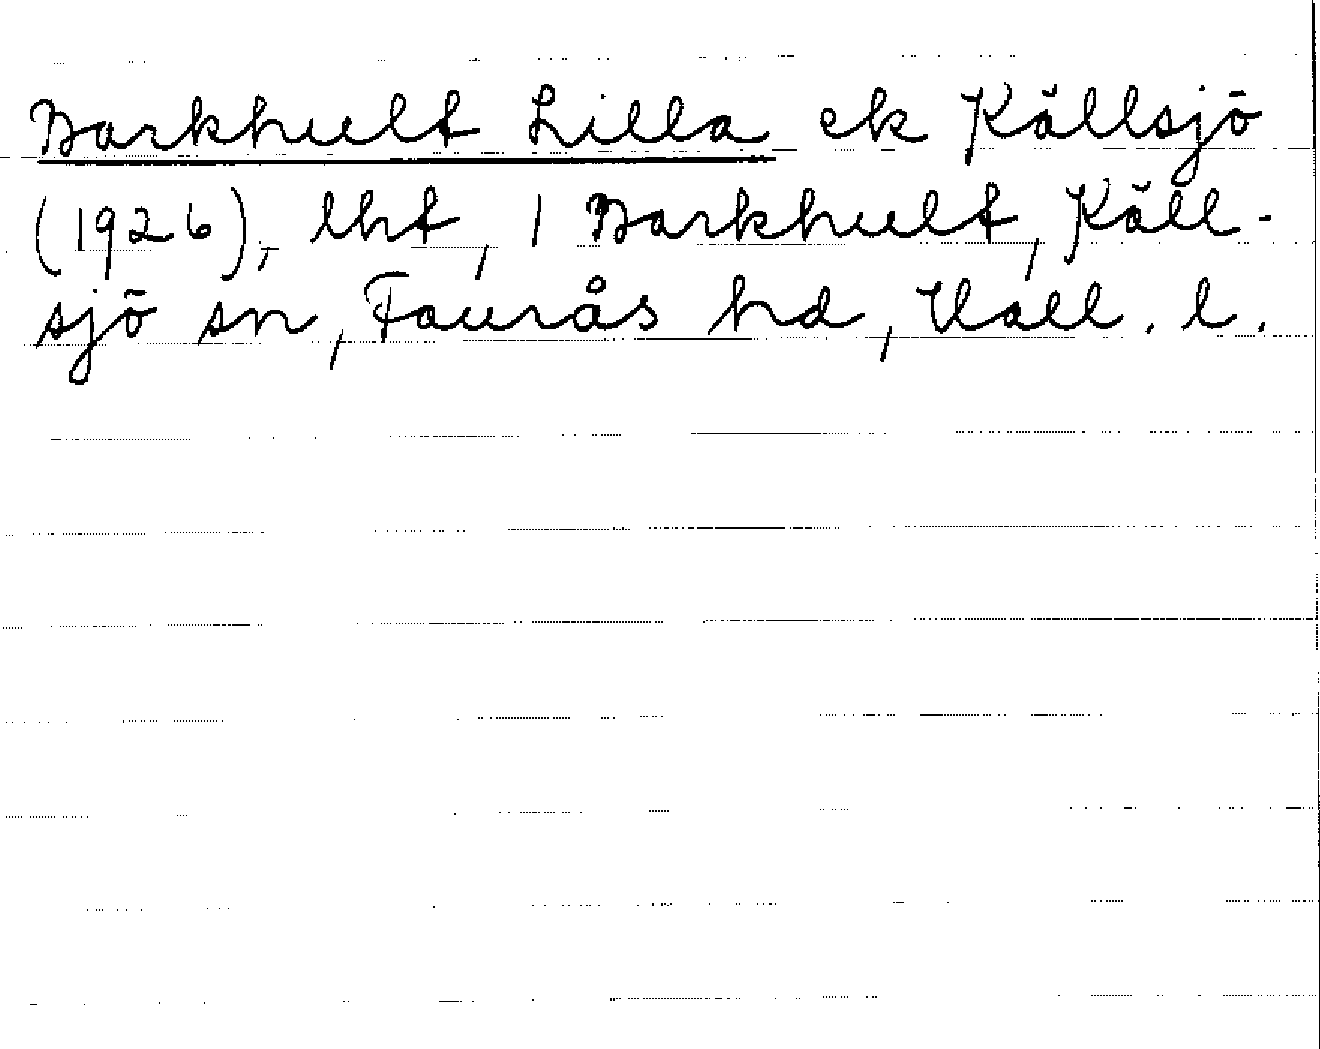 Barkhult Lilla ek Källsjö
(1926), lht, 1 Barkhult, Käll-
sjö sn, Faurås hd, Hall. l.